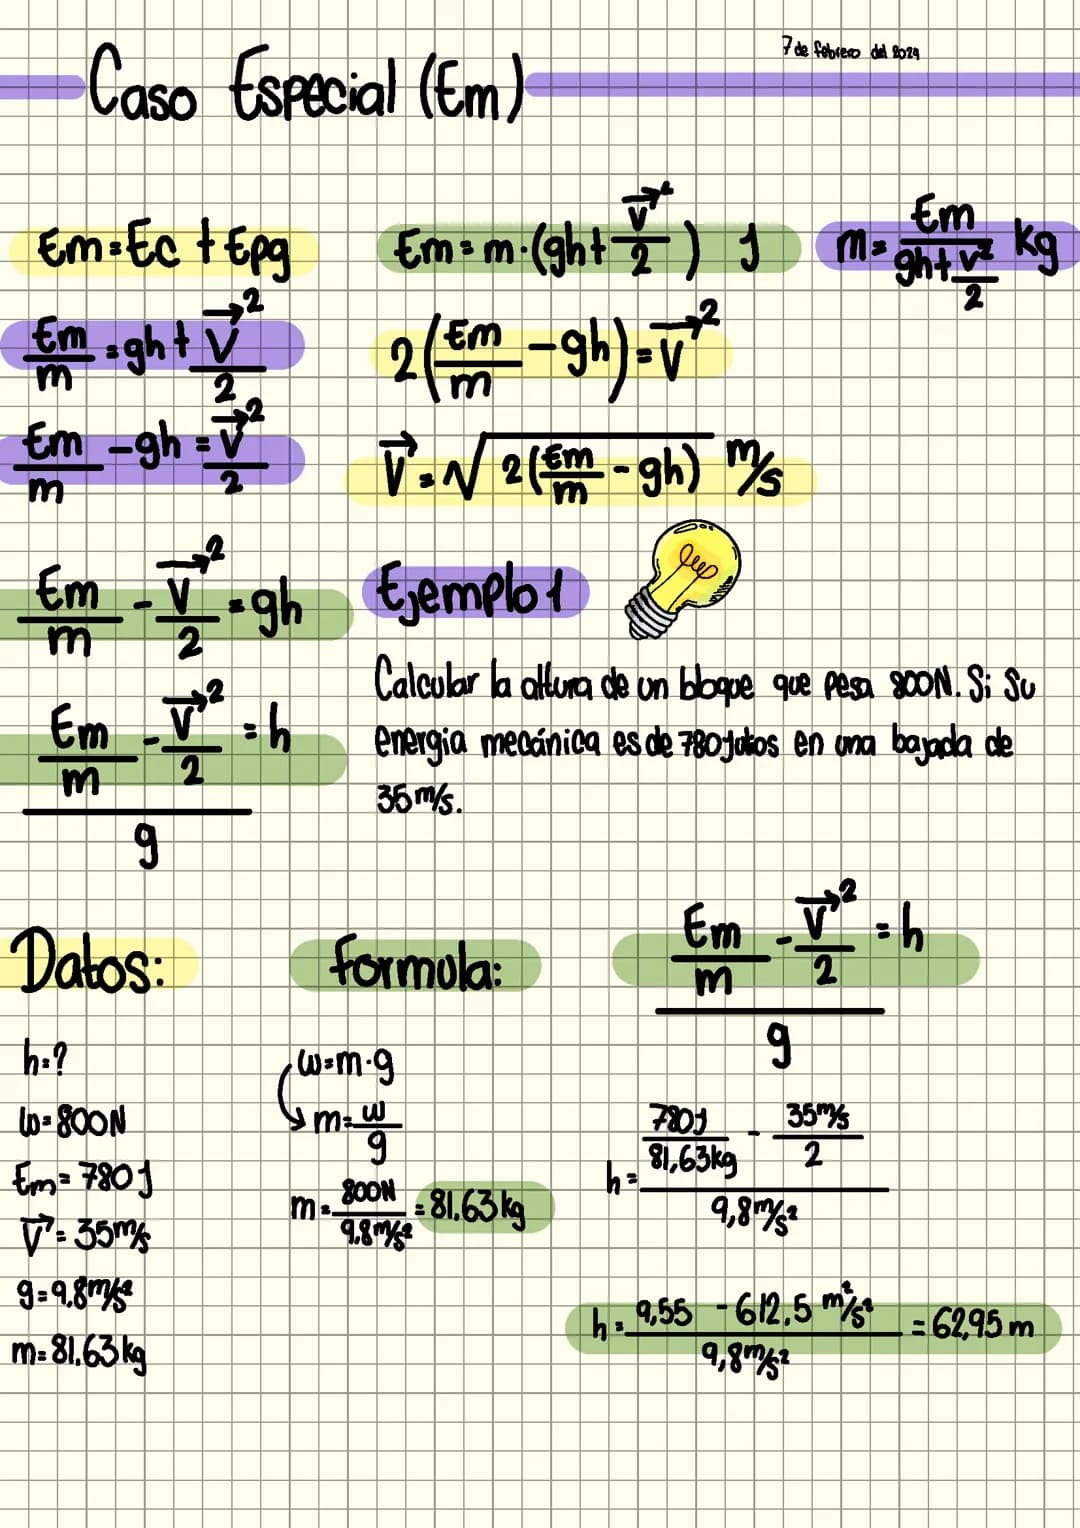 7 de febrero del 2024
Caso Especial (Em)
Em = Ec + Epg
Em/m = gh + V⃗²/2
Em/m - gh = V⃗²/2
Em/m - V⃗²/2 = gh
(Em/m - V⃗²/2)/g = h
Em = m·(gh + V⃗²/2) J
2(Em/m - gh) = V⃗²
V⃗ = √2(Em/m - gh) m/s
m = Em/(gh + v²/2) kg
Ejemplo 1
Calcular la altura de un bloque que pesa 800N. Si Su
energia mecánica es de 780 Julios en una bajada de
35 m/s.
Datos:
h=?
W=800N
Em= 780 J
V⃗= 35m/s
g=9,8m/s²
m=81.63 kg
formula:
W=m·g
m= w/g
m= 800N/9.8m/s² = 81.63 kg
(Em/m - V⃗²/2)/g = h
h= (780J/81,63kg - 35m/s/2)/9,8m/s²
h= (9,55 - 612,5 m²/s²)/9,8m/s² = 62,95 m